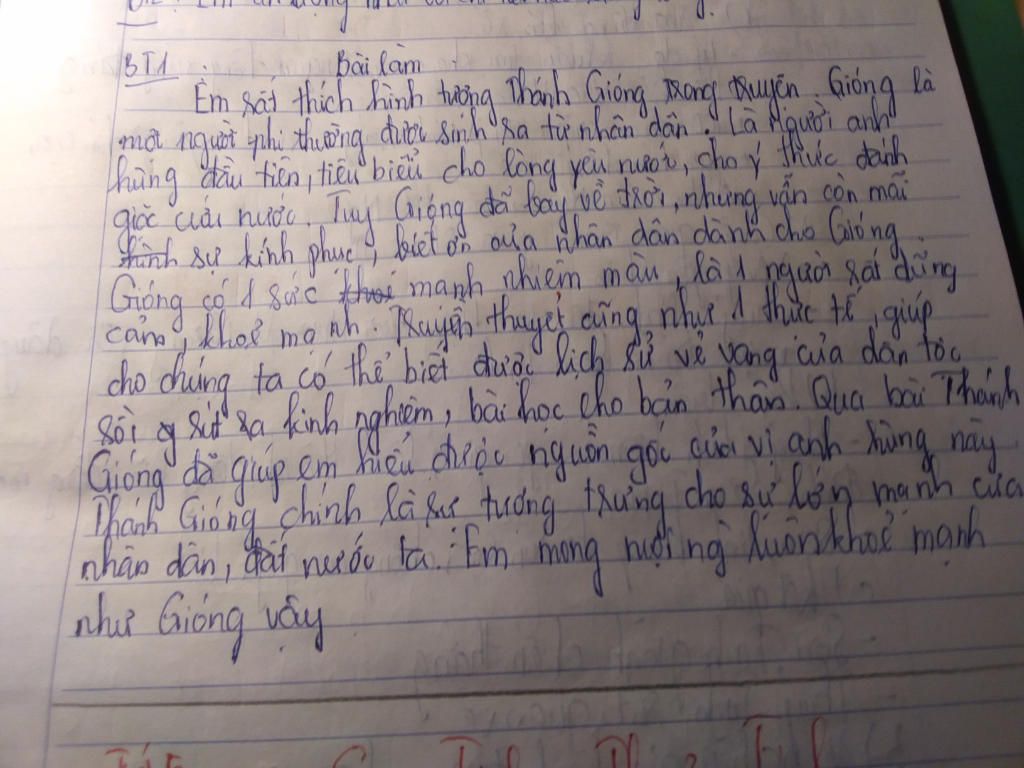 BT1 Bài làm
Em rất thích hình tượng Thánh Gióng trong truyện. Gióng là
một người phi thường được sinh ra từ nhân dân. Là người anh
hùng đầu tiên, tiêu biểu cho lòng yêu nước, cho ý thức đánh
giặc cứu nước. Tuy Gióng đã bay về trời, nhưng vẫn còn mãi
sự kính phục, biết ơn của nhân dân dành cho Gióng
Gióng có 1 sức mạnh nhiệm màu, là 1 người rất dũng
cảm, khoẻ mạnh. Truyền thuyết cũng như 1 thực tế, giúp
cho chúng ta có thể biết được lịch sử vẻ vang của dân tộc
rồi rút ra kinh nghiệm, bài học cho bản thân. Qua bài Thánh
Gióng đã giúp em hiểu được nguồn gốc của vị anh hùng này
Thánh Gióng chính là sự tượng trưng cho sự lớn mạnh của
nhân dân, đất nước ta. Em mong mọi ng luôn khoẻ mạnh
như Gióng vậy